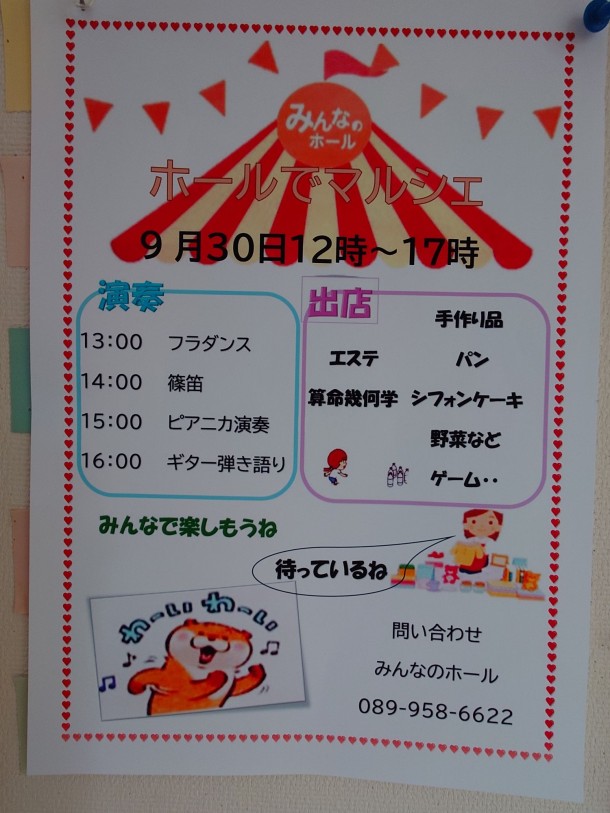 みんなの
ホール
ホールでマルシェ
9月30日12時～17時
演奏
13:00 フラダンス
14:00 篠笛
15:00 ピアニカ演奏
16:00 ギター弾き語り
出店
手作り品
エステ パン
算命幾何学 シフォンケーキ
野菜など
ゲーム‥
みんなで楽しもうね
待っているね
わーい わーい
問い合わせ
みんなのホール
089-958-6622